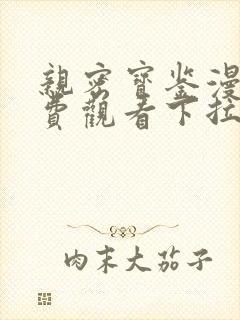 親密寶鉴漫
費觀看下拉
肉末大茄子